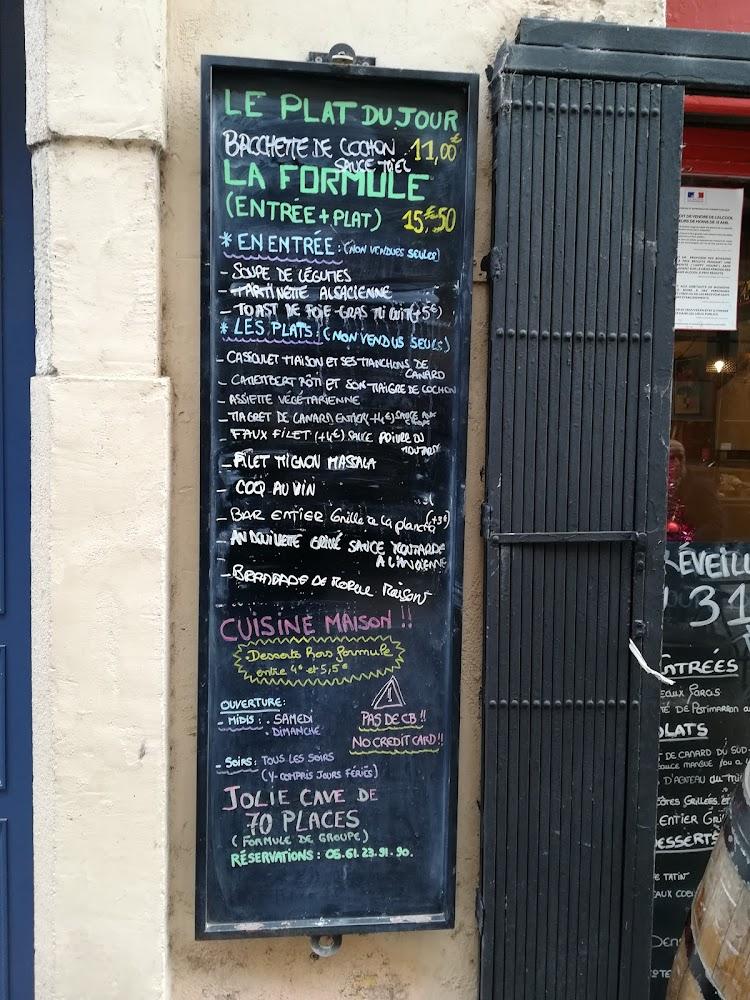 LE PLAT DU JOUR
BROCHETTE DE COCHON 11,00€
SAUCE MIEL
LA FORMULE
(ENTRÉE + PLAT) 15,€50
* EN ENTRÉE : (NON VENDUES SEULES)
- SOUPE DE LÉGUMES
- TARTINETTE ALSACIENNE
- TOAST DE FOIE-GRAS MI CUIT (+5€)
* LES PLATS : (NON VENDUS SEULS)
- CASSOULET MAISON ET SES MANCHONS DE
CANARD
- CAMEMBERT RÔTI ET SON MAIGRE DE COCHON
- ASSIETTE VÉGÉTARIENNE
- MAGRET DE CANARD ENTIER (+4€) SAUCE AUX
- FAUX FILET (+4€) SAUCE POIVRE OU
MOUTARDE
- FILET MIGNON MASSALA
- COQ AU VIN
- BAR ENTIER Grillé à la plancha (+3€)
- ANDOUILLETTE GRILLÉ SAUCE MOUTARDE
À L'ANCIENNE
- BRANDADE DE MORUE MAISON
CUISINE MAISON !!
Desserts hors formule
entre 4€ et 5,5€
OUVERTURE :
- MIDIS : . SAMEDI
. DIMANCHE
PAS DE CB !!
NO CREDIT CARD !!
- SOIRS : TOUS LES SOIRS
(Y-COMPRIS JOURS FÉRIÉS)
JOLIE CAVE DE
70 PLACES
(FORMULE DE GROUPE)
RÉSERVATIONS : 05.61.23.91.90.
RÉVEILL
31
NTRÉES
PLATS
T DE CANARD DU SUD-
D'AGNEAU du mi
ENTIER Gri
DESSERTS
E TATIN